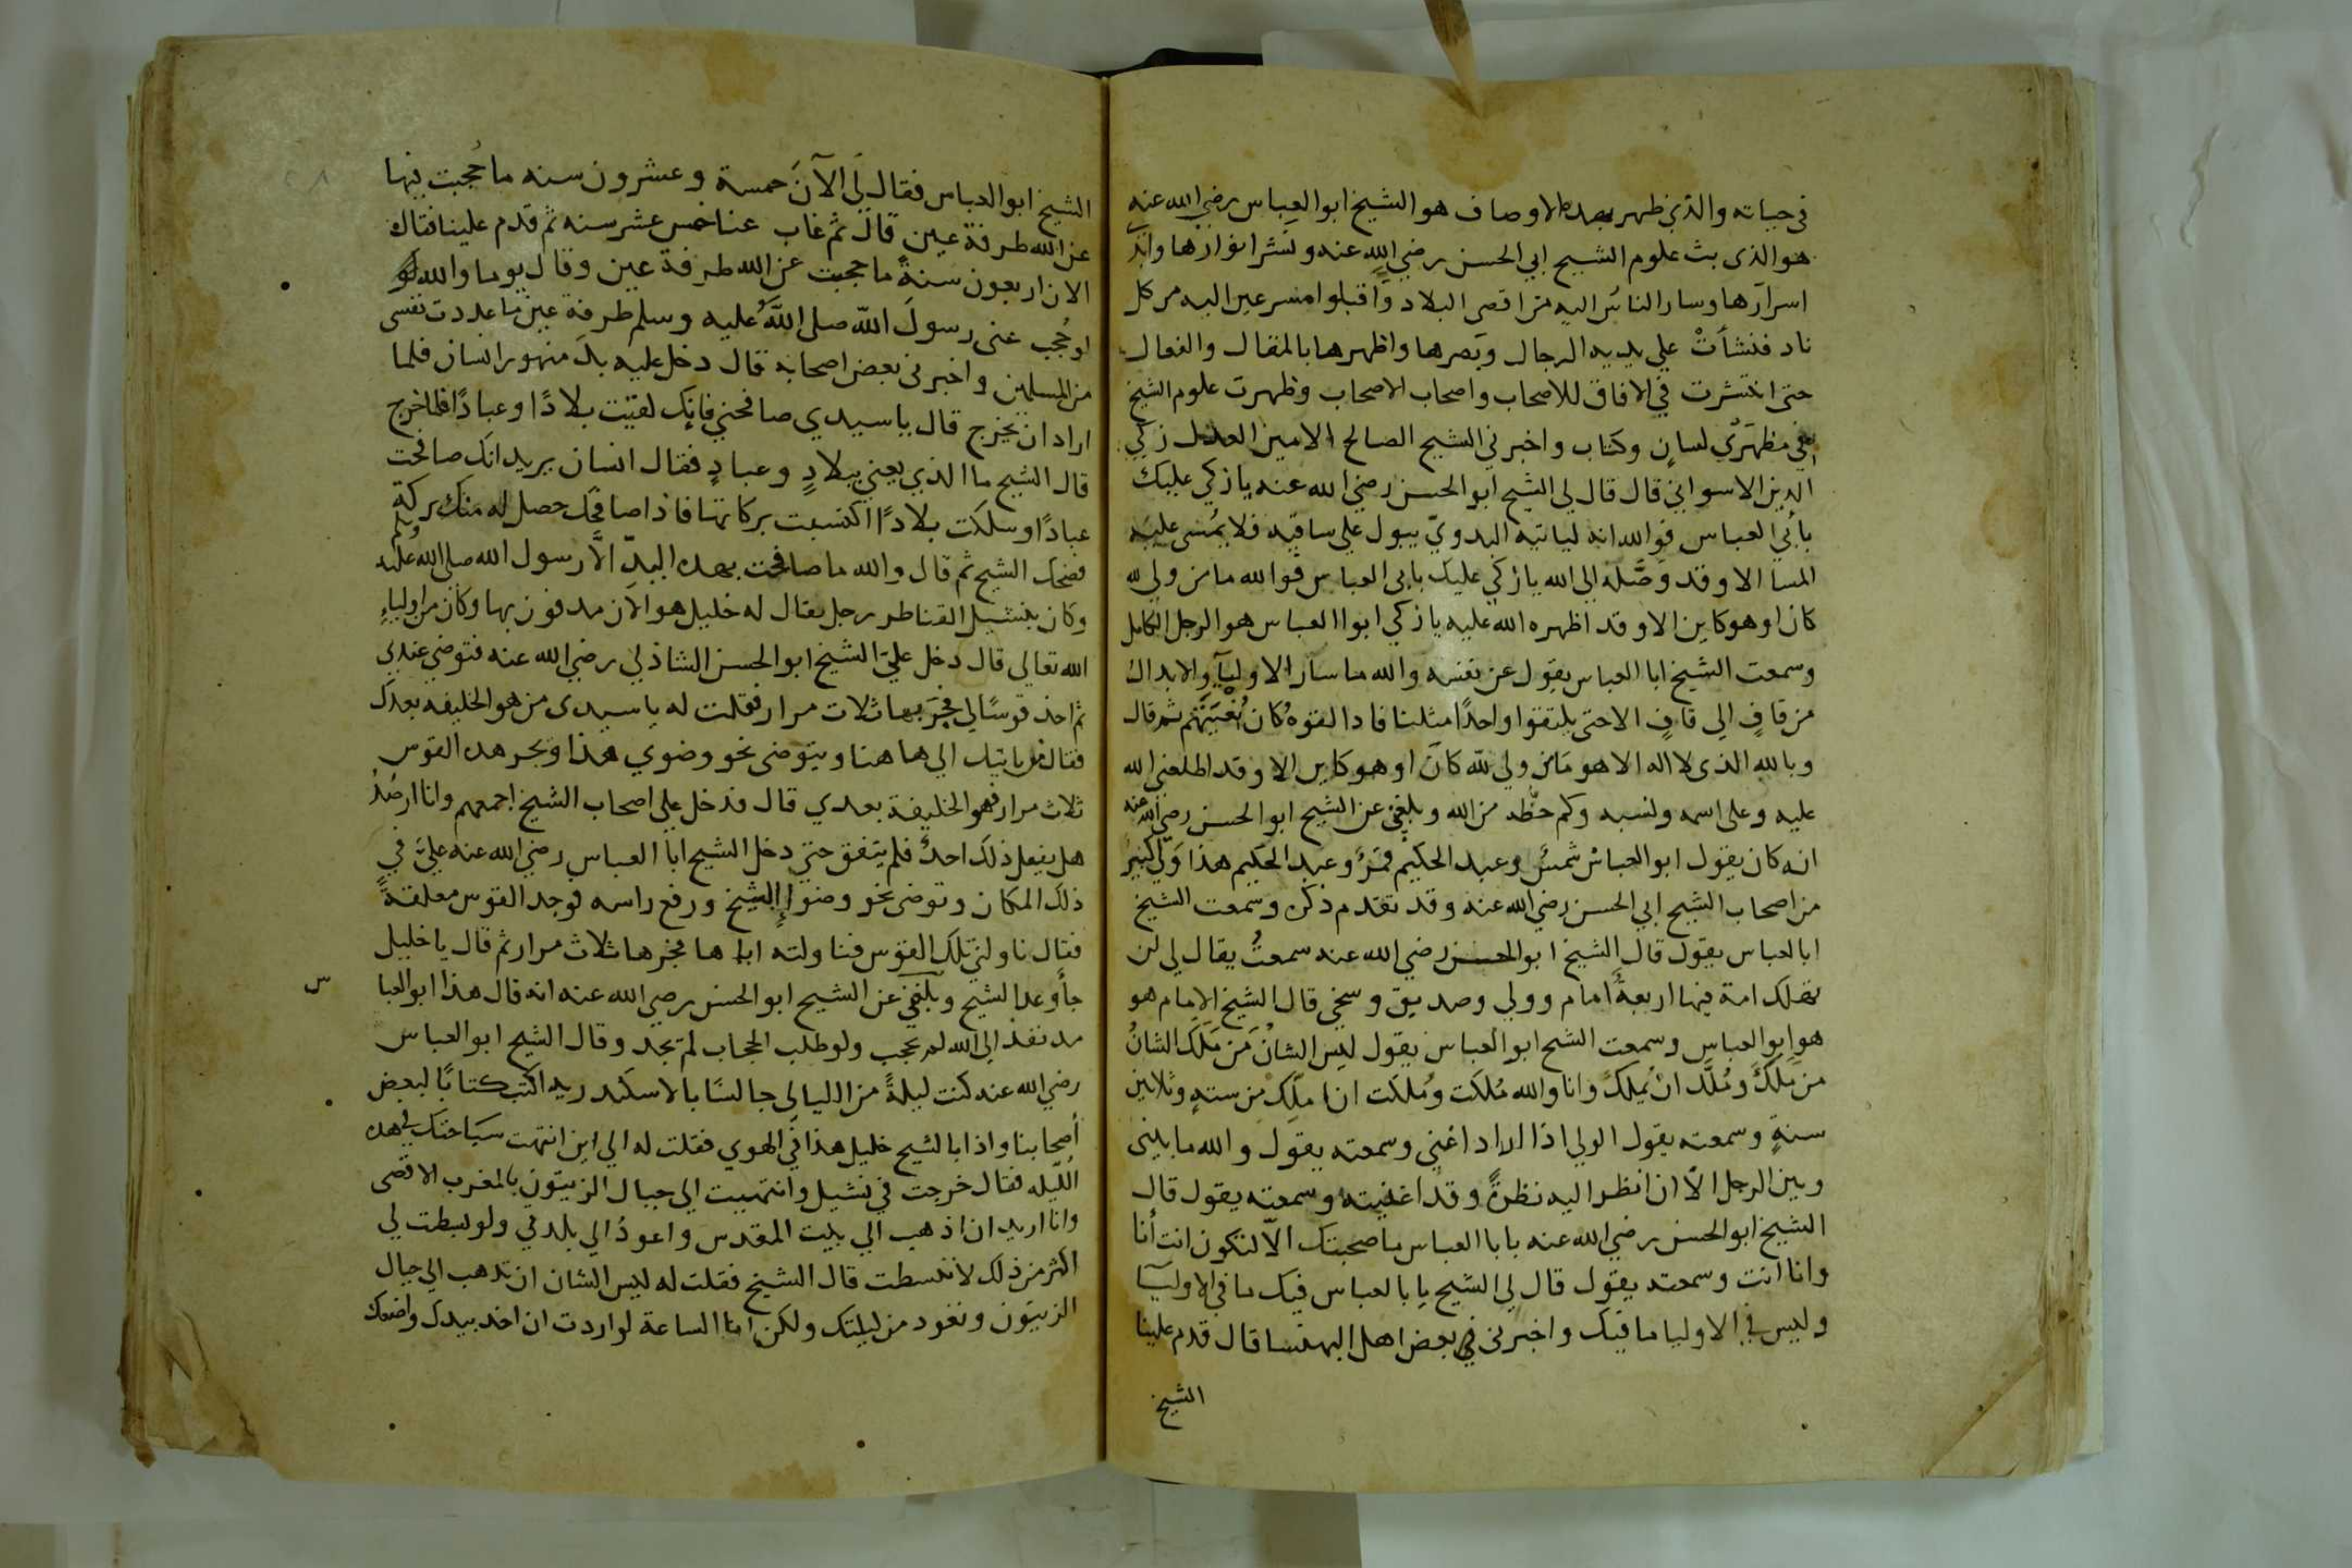 في حياته والذي ظهر بهده الاوصاف هو الشيخ ابو العباس رضي الله عنه
هو الذى بث علوم الشيخ ابي الحسن رضي الله عنه ونشر انوارها وابد
اسرارها وسار الناس اليه من اقصى البلاد واقبلوا مسرعين اليه من كل
ناد فنشأت علي يديه الرجال وبصرها واظهرها بالمقال والفعال
حتى انتشرت في الافاق للاصحاب واصحاب الاصحاب وظهرت علوم الشيخ
مظهري لسان وكتاب واخبرني الشيخ الصالح الامين العدل زكي
الدين الاسواني قال قال لي الشيخ ابو الحسن رضي الله عنه يا زكي عليك
بابي العباس فوالله انه لياتيه البدوي يبول علي ساقيه فلا يمسى عليه
المسا الا وقد وصله الي الله يا زكي عليك بابي العباس فوالله ما من ولي لله
كان او هو كاين الا وقد اظهره الله عليه يا زكي ابوا العباس هو الرجل الكامل
وسمعت الشيخ ابا العباس يقول عن نفسه والله ما سار الاوليآ والابدال
من قاف الي قاف الا حتى يلتقوا واحدًا مثلنا فاذا لقوه كان بغيتهم ثم قال
وبالله الذى لا اله الا هو ما من ولي لله كان او هو كاين الا وقد اطلعني الله
عليه وعلى اسمه ونسبه وكم حظه من الله وبلغني عن الشيخ ابو الحسن رضي الله عنه
انه كان يقول ابو العباس شمس وعبد الحكيم قمر وعبد الحكيم هذا ولي كبير
من اصحاب الشيخ ابي الحسن رضي الله عنه وقد تقدم ذكره وسمعت الشيخ
ابا العباس يقول قال الشيخ ابو الحسن رضي الله عنه سمعت يقال لي لن
تهلك امة فيها اربعة امام وولي وصديق وسخي قال الشيخ الامام هو
هو ابو العباس وسمعت الشيخ ابو العباس يقول ليس الشان من ملك الشان
من ملك وملك ان يملك وانا والله ملكت وملكت ان املك من ستة وثلاثين
سنة وسمعته يقول الولي اذا اراد اغنى وسمعته يقول والله ما بيني
وبين الرجل الا ان انظر اليه نظرة وقد اغنيته وسمعته يقول قال
الشيخ ابو الحسن رضي الله عنه يابا العباس ما صحبتك الا لتكون انت أنا
وانا انت وسمعته يقول قال لي الشيخ يابا العباس فيك ما في الاوليا
وليس في الاوليا ما فيك واخبرنى بعض اهل البهنسا قال قدم علينا
الشيخ
الشيخ ابو العباس فقال لي الآن خمسة وعشرون سنه ما حجبت فيها
عن الله طرفة عين قال ثم غاب عنا خمس عشر سنه ثم قدم علينا فقال
الان اربعون سنة ما حجبت عن الله طرفة عين وقال يوما والله لو
حجب عنى رسول الله صلى الله عليه وسلم طرفة عين ما عددت نفسى
من المسلمين واخبرنى بعض اصحابه قال دخل عليه انسان فلما
اراد ان يخرج قال يا سيدي صافحني فانك لقيت بلادًا وعبادًا فلما خرج
قال الشيخ ما الذي يعني ببلادٍ وعبادٍ فقال انسان يريد انك صافحت
عبادًا وسلكت بلادًا اكتسبت بركاتها فاذا صافحك حصل له منك بركة
فضحك الشيخ ثم قال والله ما صافحت بهده اليد الا رسول الله صلى الله عليه وسلم
وكان بنشيل القناطر رجل يقال له خليل هو الان مدفون بها وكان من اولياء
الله تعالى قال دخل علي الشيخ ابو الحسن الشاذلي رضي الله عنه فتوضي عندي
ثم اخذ قوسًا لي فجر بها ثلاث مرار فقلت له يا سيدى من هو الخليفه بعدك
فقال من ياتيك الي هاهنا ويتوضى نحو وضوي هذا ويجر هده القوس
ثلاث مرار فهو الخليفة بعدي قال فدخل علي اصحاب الشيخ اجمعهم وانا ارصد
هل يفعل ذلك احد فلم يتفق حتى دخل الشيخ ابا العباس رضي الله عنه علي في
ذلك المكان وتوضى نحو وضوا الشيخ ورفع راسه فوجد القوس معلقة
فقال ناولني تلك القوس فناولته اياها فجرها ثلاث مرار ثم قال يا خليل
جا وعد الشيخ وبلغني عن الشيخ ابو الحسن رضي الله عنه انه قال هذا ابو العباس
مد نفذ الي الله لم يحجب ولو طلب الحجاب لم يجد وقال الشيخ ابو العباس
رضي الله عنه كنت ليلة من الليالي جالسًا بالاسكندريه اكتب كتابًا لبعض
أصحابنا واذا بالشيخ خليل هذا في الهوي فقلت له الي اين انتهت سياحتك في هده
الليله فقال خرجت في نشيل وانتهيت الي جبال الزيتون بالمغرب الاقصى
وانا اريد ان اذهب الي بيت المقدس واعود الي بلدي ولو بسطت لي
اكثر من ذلك لانبسطت قال الشيخ فقلت له ليس الشان ان تذهب الي جبال
الزيتون وتعود من ليلتك ولكن انا الساعة لو اردت ان اخد بيدك واضعك